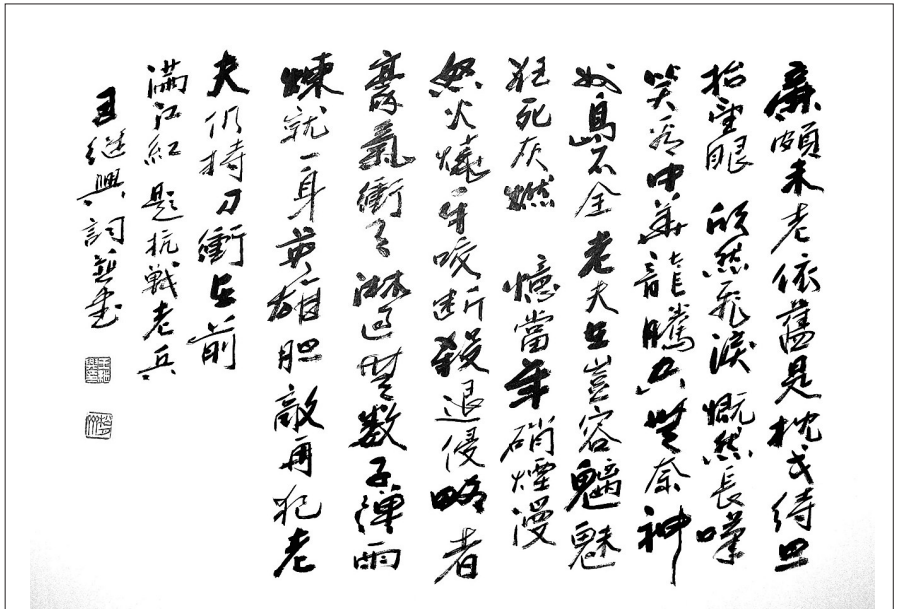 廉頗未老依舊是枕戈待旦
抬望眼 欣然飛淚 慨然長嘆
笑看中華龍騰無奈神
州島不全老夫在豈容魑魅
狂死灰燃 憶當年硝煙漫
怒火燒牙咬断殺退侵略者
豪氣衝天淋過無數子彈雨
煉就一身英雄胆敵再犯老
夫仍持刀衝在前
满江紅 題抗戰老兵
王继興詞並書